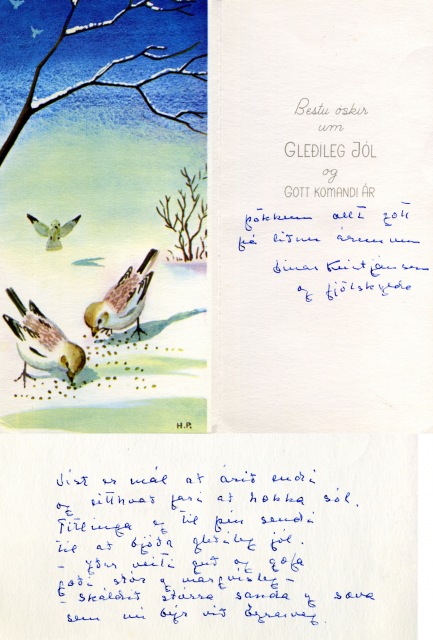 H.P.
Bestu óskir
um
GLEÐILEG JÓL
og
GOTT KOMANDI ÁR
þökkum allt gott
á liðnum árum
Einar Kristjánsson
og fjölskylda
Víst er mál að árið endi
og sitthvað fari að hækka sól.
Titlinga ég til þín sendi
til að bjóða gleðileg jól.
- yður veiti guð og gæfa
gæði stór og margvísleg -
- skáldið stærra sanda og sæva
sem nú býr við Byggðaveg.